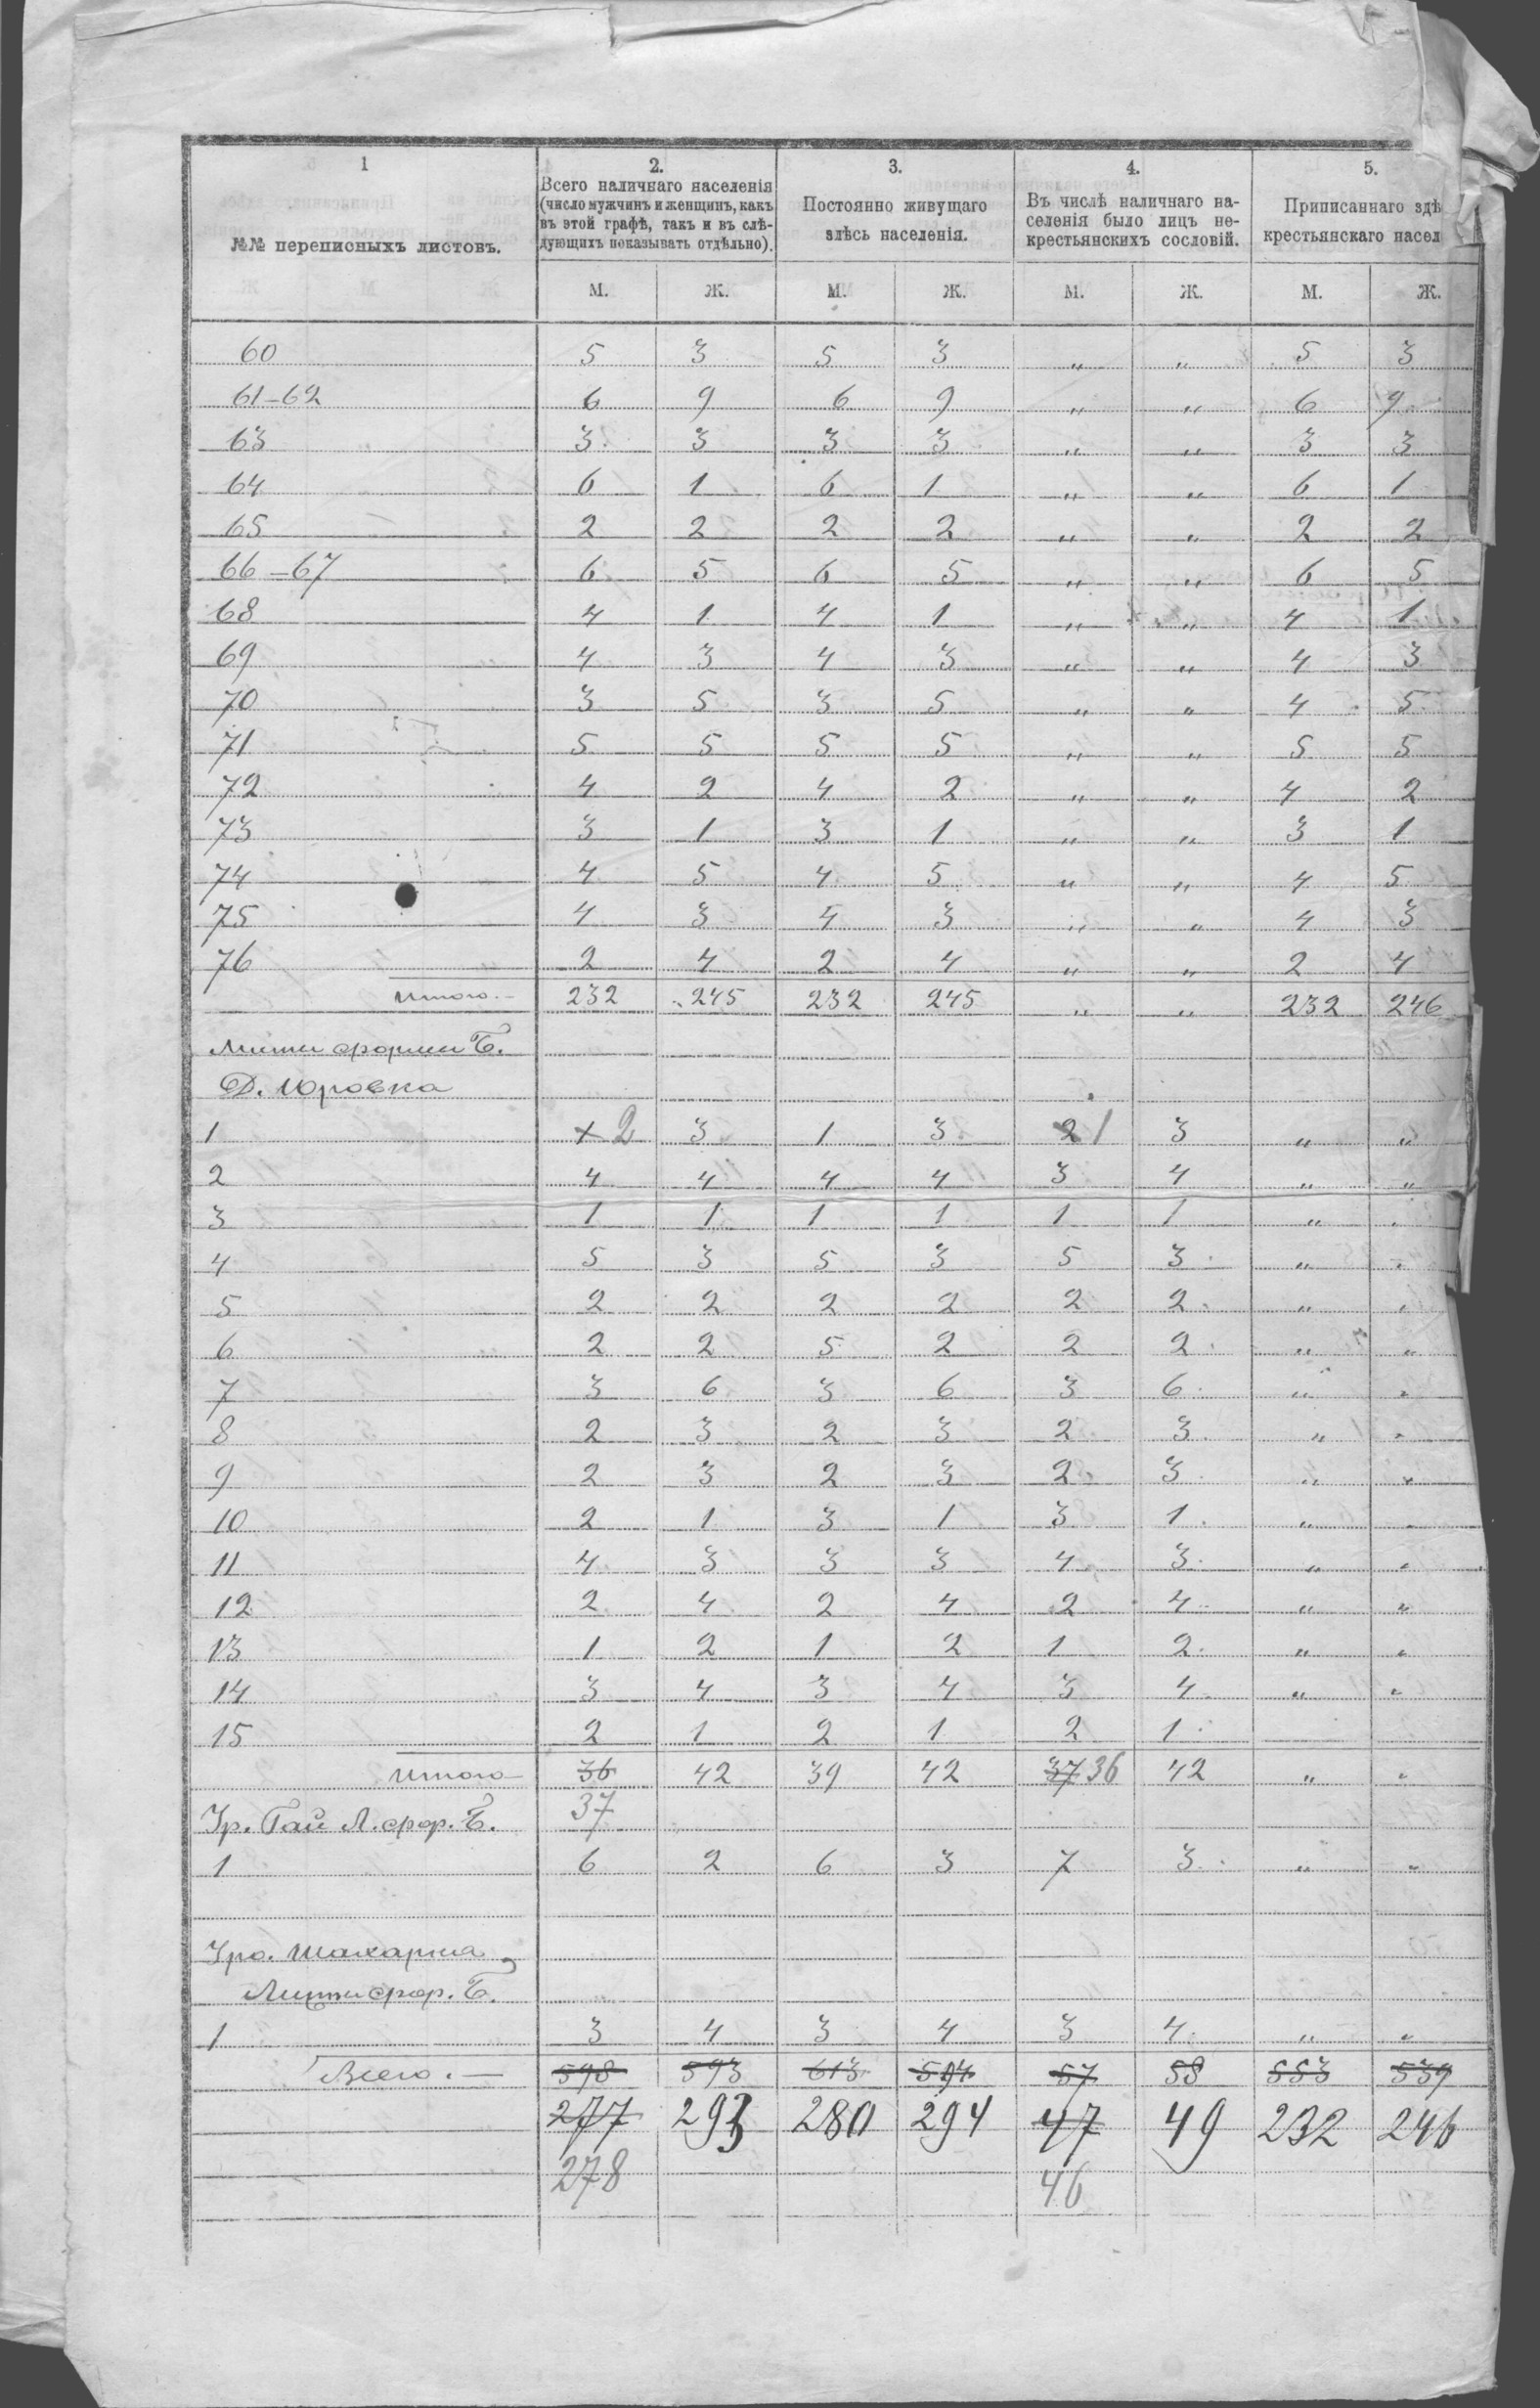 1 2. 3. 4. 5.
№№ переписныхъ листовъ.
Всего наличнаго населенія
(число мужчинъ и женщинъ, какъ
въ этой графѣ, такъ и въ слѣ-
дующихъ показывать отдѣльно).
Постоянно живущаго
здѣсь населенія.
Въ числѣ наличнаго на-
селенія было лицъ не-
крестьянскихъ сословій.
Приписаннаго здѣ
крестьянскаго насел
М. Ж. М. Ж. М. Ж. М. Ж.
60 5 3 5 3 „ „ 5 3
61-62 6 9 6 9 „ „ 6 9
63 3 3 3 3 „ „ 3 3
64 6 1 6 1 „ „ 6 1
65 2 2 2 2 „ „ 2 2
66-67 6 5 6 5 „ „ 6 5
68 4 1 4 1 „ „ 4 1
69 4 3 4 3 „ „ 4 3
70 3 5 3 5 „ „ 4 5
71 5 5 5 5 „ „ 5 5
72 4 2 4 2 „ „ 4 2
73 3 1 3 1 „ „ 3 1
74 4 5 4 5 „ „ 4 5
75 4 3 4 3 „ „ 4 3
76 2 4 2 4 „ „ 2 4
Итого.- 232 245 232 245 „ „ 232 246
Листы формы Б.
Д. Юровка
1 1 2 3 1 3 2 1 3 „ „
2 4 4 4 4 3 4 „ „
3 1 1 1 1 1 1 „ „
4 5 3 5 3 5 3 „ „
5 2 2 2 2 2 2 „ „
6 2 2 5 2 2 2 „ „
7 3 6 3 6 3 6 „ „
8 2 3 2 3 2 3 „ „
9 2 3 2 3 2 3 „ „
10 2 1 3 1 3 1 „ „
11 4 3 3 3 4 3 „ „
12 2 4 2 4 2 4 „ „
13 1 2 1 2 1 2 „ „
14 3 4 3 4 3 4 „ „
15 2 1 2 1 2 1
Итого- 36 42 39 42 37 36 42 „ „
Ур. Гай Л. фор. Б. 37
1 6 2 6 3 7 3 „ „
Уро.
Листы фор. Б.
1 3 4 3 4 3 4 „ „
Всего.- 598 593 613 594 57 58 553 539
277 293 280 294 47 49 232 246
278 46